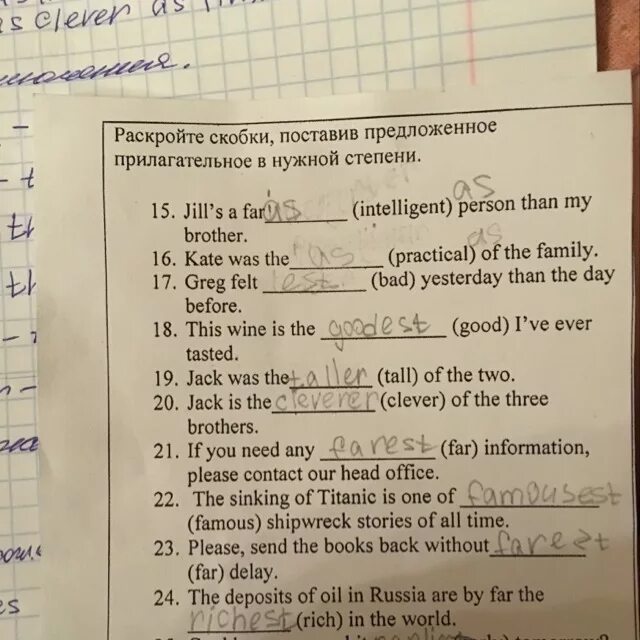 as clever as
Раскройте скобки, поставив предложенное
прилагательное в нужной степени.
as
15. Jill's a far as (intelligent) person than my
brother.
as
16. Kate was the as (practical) of the family.
17. Greg felt est (bad) yesterday than the day
before.
18. This wine is the goodest (good) I've ever
tasted.
19. Jack was the taller (tall) of the two.
20. Jack is the cleverer (clever) of the three
brothers.
21. If you need any farest (far) information,
please contact our head office.
22. The sinking of Titanic is one of famousest
(famous) shipwreck stories of all time.
23. Please, send the books back without farest
(far) delay.
24. The deposits of oil in Russia are by far the
richest (rich) in the world.